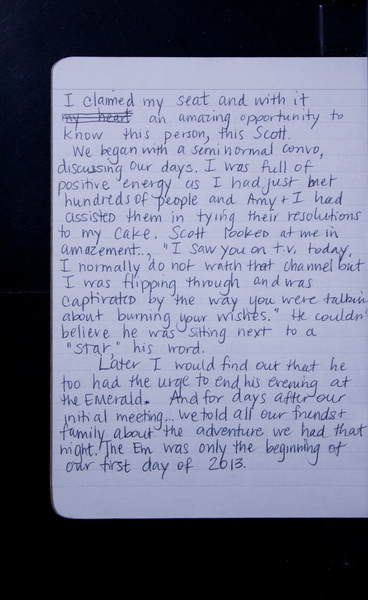 I claimed my seat and with it
my heart an amazing opportunity to
know this person, this Scott.
We began with a semi normal convo,
discussing our days. I was full of
positive energy as I had just met
hundreds of people and Amy + I had
assisted them in tying their resolutions
to my cake. Scott looked at me in
amazement.., "I saw you on t.v. today.
I normally do not watch that channel but
I was flipping through and was
captivated by the way you were talkin
about burning your wishes." He couldn'
believe he was sitting next to a
"star," his word.
Later I would find out that he
too had the urge to end his evening at
the Emerald. And for days after our
initial meeting... we told all our friends +
family about the adventure we had that
night. The Em was only the beginning of
our first day of 2013.